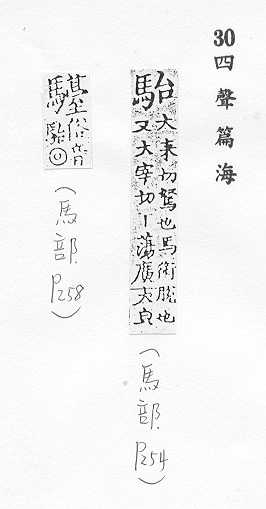 30 四聲篇海
駘
大來切駑也馬銜脫也
又大宰切丨蕩廣大皃
(馬部 P254)
俗音
駘
(馬部 P258)